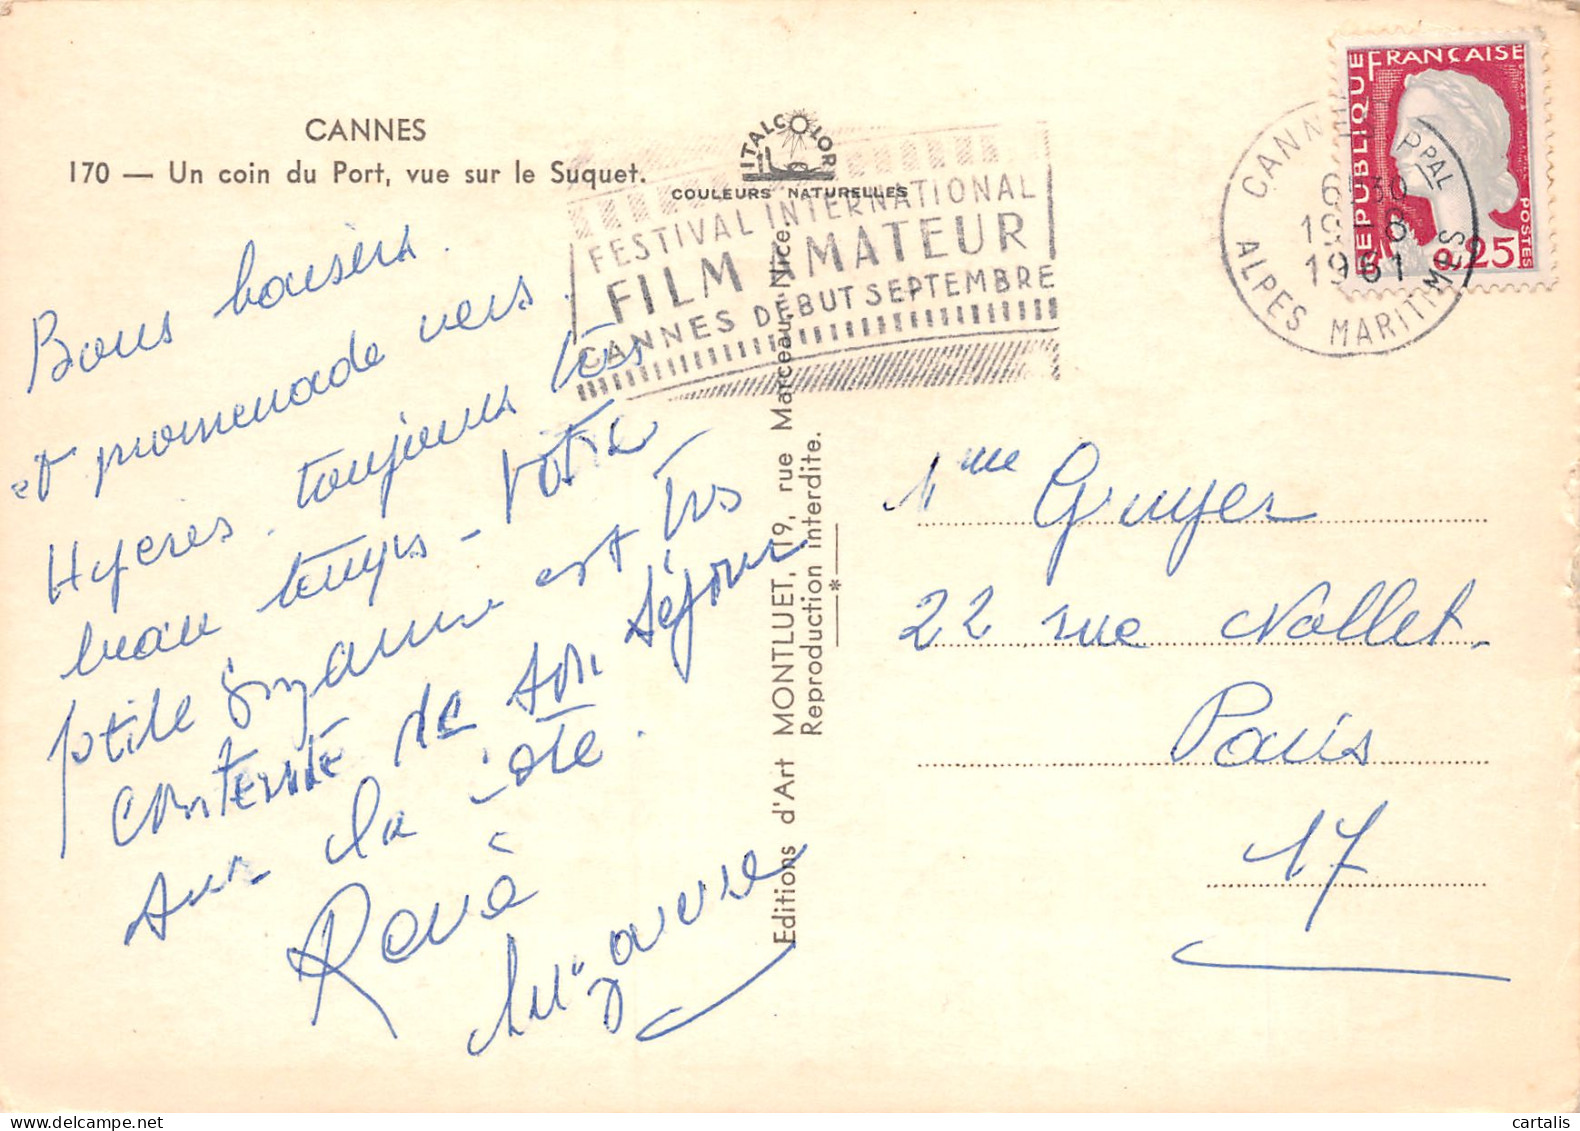 CANNES
170 — Un coin du Port, vue sur le Suquet.
ITALCOLOR
COULEURS NATURELLES
FESTIVAL INTERNATIONAL
FILM AMATEUR
CANNES DEBUT SEPTEMBRE
REPUBLIQUE FRANÇAISE
POSTES
0,25
CANNES PPAL
6H30
19-8
1961
ALPES MARITIMES
Bons baisers.
et promenade vers
Hyeres. toujours très
beau temps - Votre
ptite Suzanne est très
contente de son séjour
sur la côte.
René
Suzanne
Editions d'Art MONTLUET, 19, rue Marceau, Nice.
Reproduction interdite.
Mme Gruyer
22 rue Nollet.
Paris
17
cartalis
delcampe.net